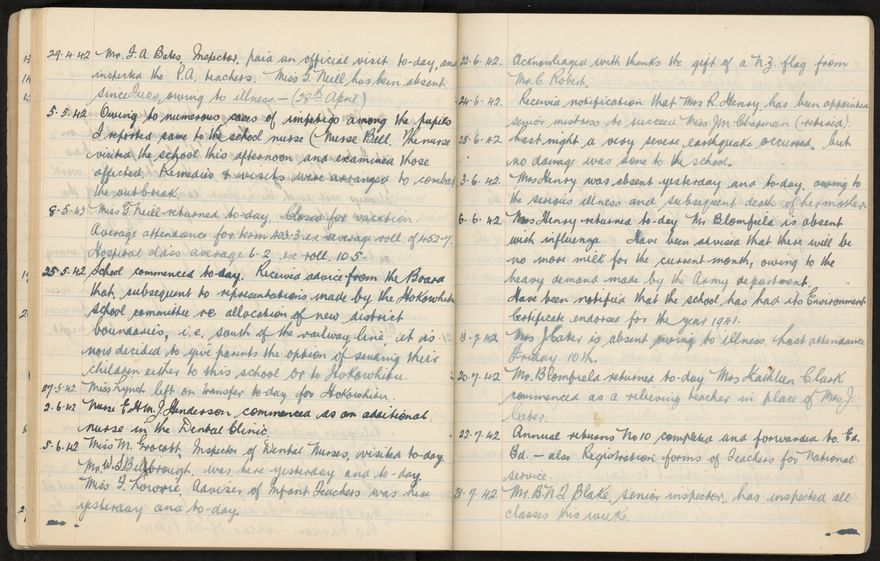 29.4.42 Mr. F. A. Bates, Inspector, paid an official visit to-day, and
inspected the P.A. teachers. Miss G. Neill has been absent
since Tues, owing to illness. — (28th April)
5.5.42 Owing to numerous cases of impetigo among the pupils
I reported same to the school nurse (Nurse Bell. The nurse
visited the school this afternoon and examined those
affected. Remedies & visits were arranged to combat
the outbreak.
8.5.42 Miss G. Neill returned to-day. Closed for vacation.
Average attendance for term 403.3 ex average roll of 452.7.
Hospital class average 6.2 ex roll 10.5.
25.5.42 School commenced to-day. Received advice from the Board
that, subsequent to representations made by the Hokowhitu
School committee re allocation of new district
boundaries, i.e. south of the railway line, it is
now decided to give parents the option of sending their
children either to this school or to Hokowhitu.
27.5.42 Miss Lynch left on transfer to-day for Hokowhitu.
2.6.42 Nurse E.H.M. Henderson commenced as an additional
nurse in the Dental Clinic.
5.6.42 Miss M. Grocott, Inspector of Dental Nurses, visited to-day.
Mr. W. S. was here yesterday and to-day.
Miss F. Lowrie, Adviser, of Infant Teachers was here
yesterday and to-day.
22.6.42. Acknowledged with thanks the gift of a N.Z. flag from
Mr. C. Robert.
24.6.42. Received notification that Mrs R. Henry has been appointed
senior mistress to succeed Miss J.M. Chapman (retired).
25.6.42 Last night a very severe earthquake occurred, but
no damage was done to the school.
3.6.42. Mrs Henry was absent yesterday and to-day owing to
the serious illness and subsequent death of her mother.
6.6.42 Mrs Henry returned to-day. Mr Blomfield is absent
with influenza. Have been advised that there will be
no more milk for the current month, owing to the
heavy demand made by the Army department.
Have been notified that the school has had its Environment
Certificate endorsed for the year 1941.
7.42 Mrs J Cater is absent owing to illness. Last attendance
Friday 10th.
20.7.42 Mr. Blomfield returned to-day Mrs Kathleen Clark
commenced as a relieving teacher in place of Mrs J.
Cater.
23.7.42 Annual returns No 10 completed and forwarded to Ed.
Bd. — also Registration forms of Teachers for National
service.
31.7.42 Mr. B.N.T. Blake, senior inspector, has inspected all
classes this week.